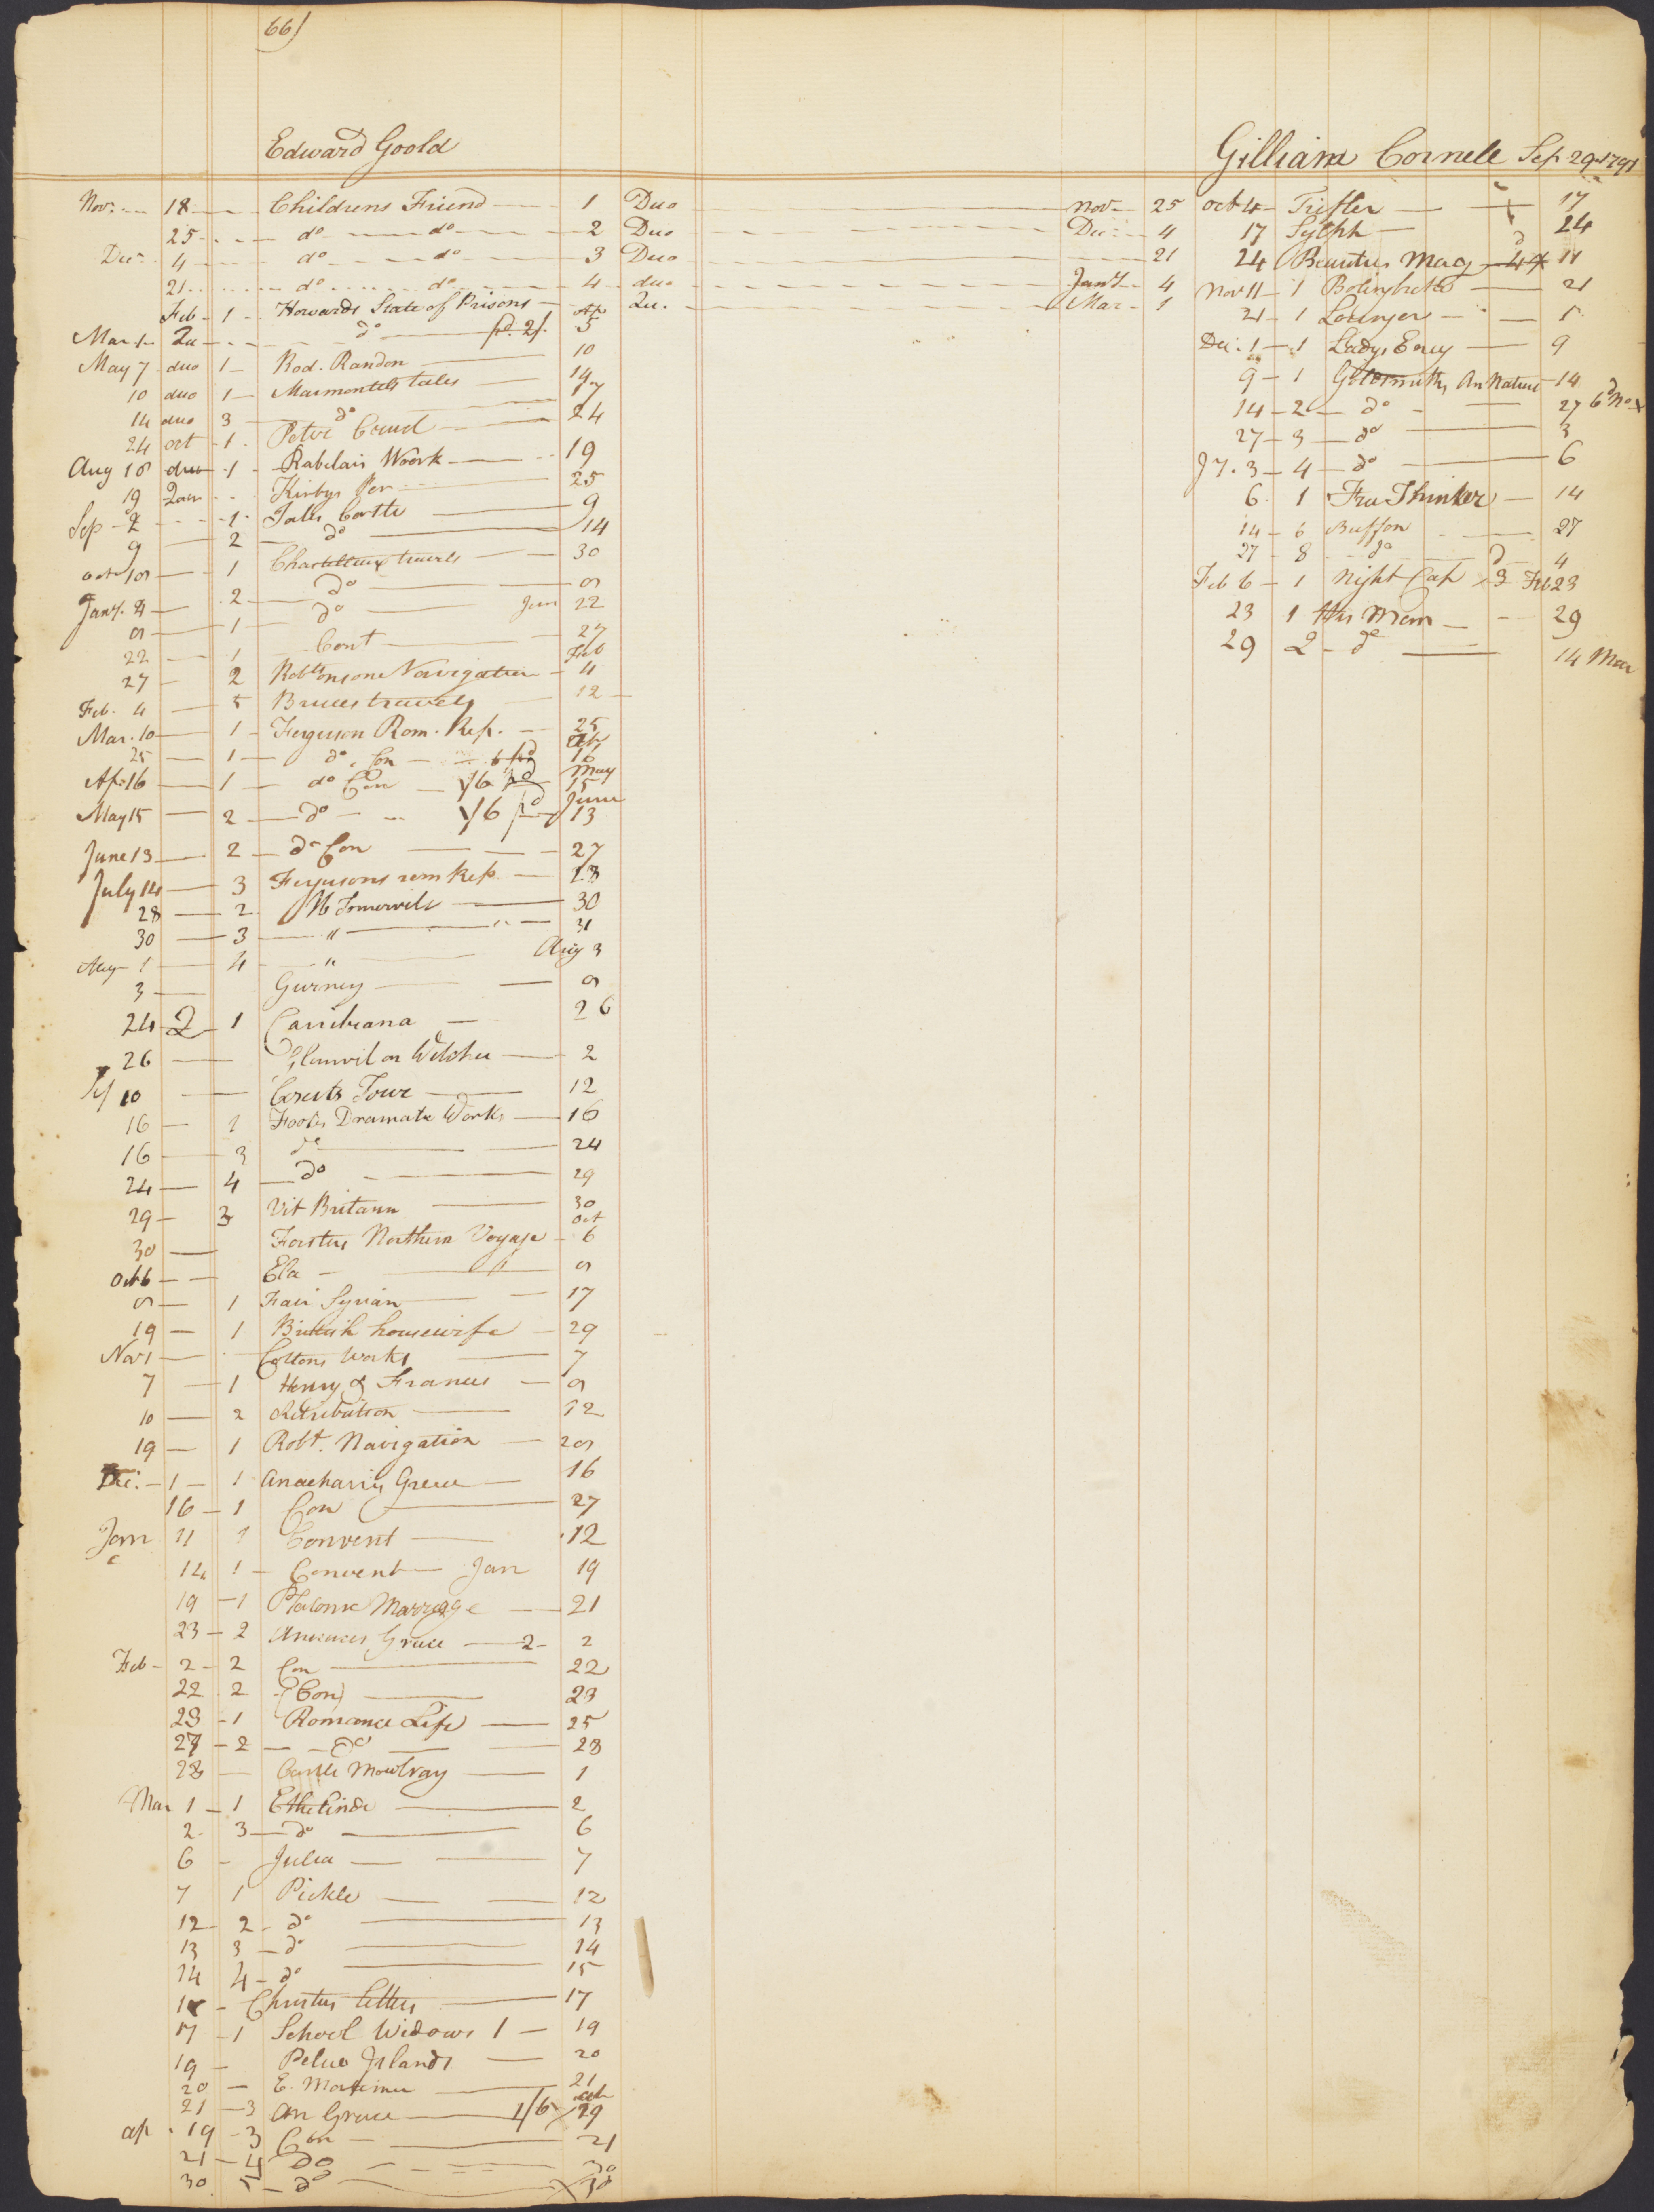 66)
Edward Goold
Nov. 18 Childrens Friend 1 Duo Nov 25
25 do do 2 Duo Dec 4
Dec 4 do do 3 Duo 21
21 do do 4 duo Jany 4
Feb 1 Howards State of Prisons Qu. Mar 1
Mar 1 Qu do pd. 2/. 5
May 7 duo 1 Rod. Randon 10
10 duo 1 Marmontels tales 14
14 duo 3 do 17
24 oct 1 Peter 24
Aug 18 duo 1 Rabelais Woork 19
19 Kirbys 25
Sep 2 1 9
9 2 do 14
1 travels 30
Jany. 2 do 9
9 1 do Jan 22
22 1 Cont 27
27 2 Navigation Feb 4
Feb. 4 5 Bruces travels 12
Mar. 10 1 Ferguson Rom. Rep. 25
25 1 do Con Ap 16
Ap. 16 1 do Con 1/6 pd May 15
May 15 2 do 1/6 pd June 13
June 13 2 do Con 27
July 14 3 Fergusons rom Rep. 28
28 2 30
30 3 " 31
Aug 1 4 " Aug 3
3 Gurney 9
24 2 1 26
26 Glanvil on Witches 2
Sep 10 Tour 12
16 1 Footes Dramatic Works 16
16 3 do 24
24 4 do 29
29 3 Vit Britann 30
30 Forsters Northern Voyage Oct 6
Oct 6 Ela 9
9 1 Fair Syrian 17
19 1 British housewife 29
Nov 1 Cottons Works 7
7 1 Henry & Frances 9
10 2 Retribution 12
19 1 Robt. Navigation 29
Dec. 1 1 Anacharsis Greece 16
16 1 Con 27
Jan 11 1 Convent 12
14 1 Convent Jan 19
19 1 Platonic Marriage 21
23 2 Greece 2 2
Feb 2 2 Con 22
22 2 (Con) 23
23 1 Romance Life 25
27 2 do 28
28 Castle Mowbray 1
Mar 1 1 Ethelinde 2
2 3 do 6
6 Julia 7
7 1 Pickle 12
12 2 do 13
13 3 do 14
14 4 do 15
15 letters 17
17 1 School Widows 1 19
19 Pelue Islands 20
20 E. Mortimer 21
21 3 An Greece 1/6 ap 19
ap 19 3 Con 21
21 4 do 30
30 5 do
Gilliam Cornele Sep 29 1791
Oct 4 Trifler 17
17 Sylph 24
24 Mag 11
Nov 11 1 Bolingbroke 21
21 1 Lounger 1
Dec. 1 1 Ladys Ency 9
9 1 Goldsmiths An Nature 14
14 2 do 27
27 3 do 3
Jy. 3 4 do 6
6 1 Free Thinker 14
14 6 Buffon 27
27 8 do 4
Feb 6 1 Night Cap Feb 23
23 1 Mem 29
29 2 do 14 Mar